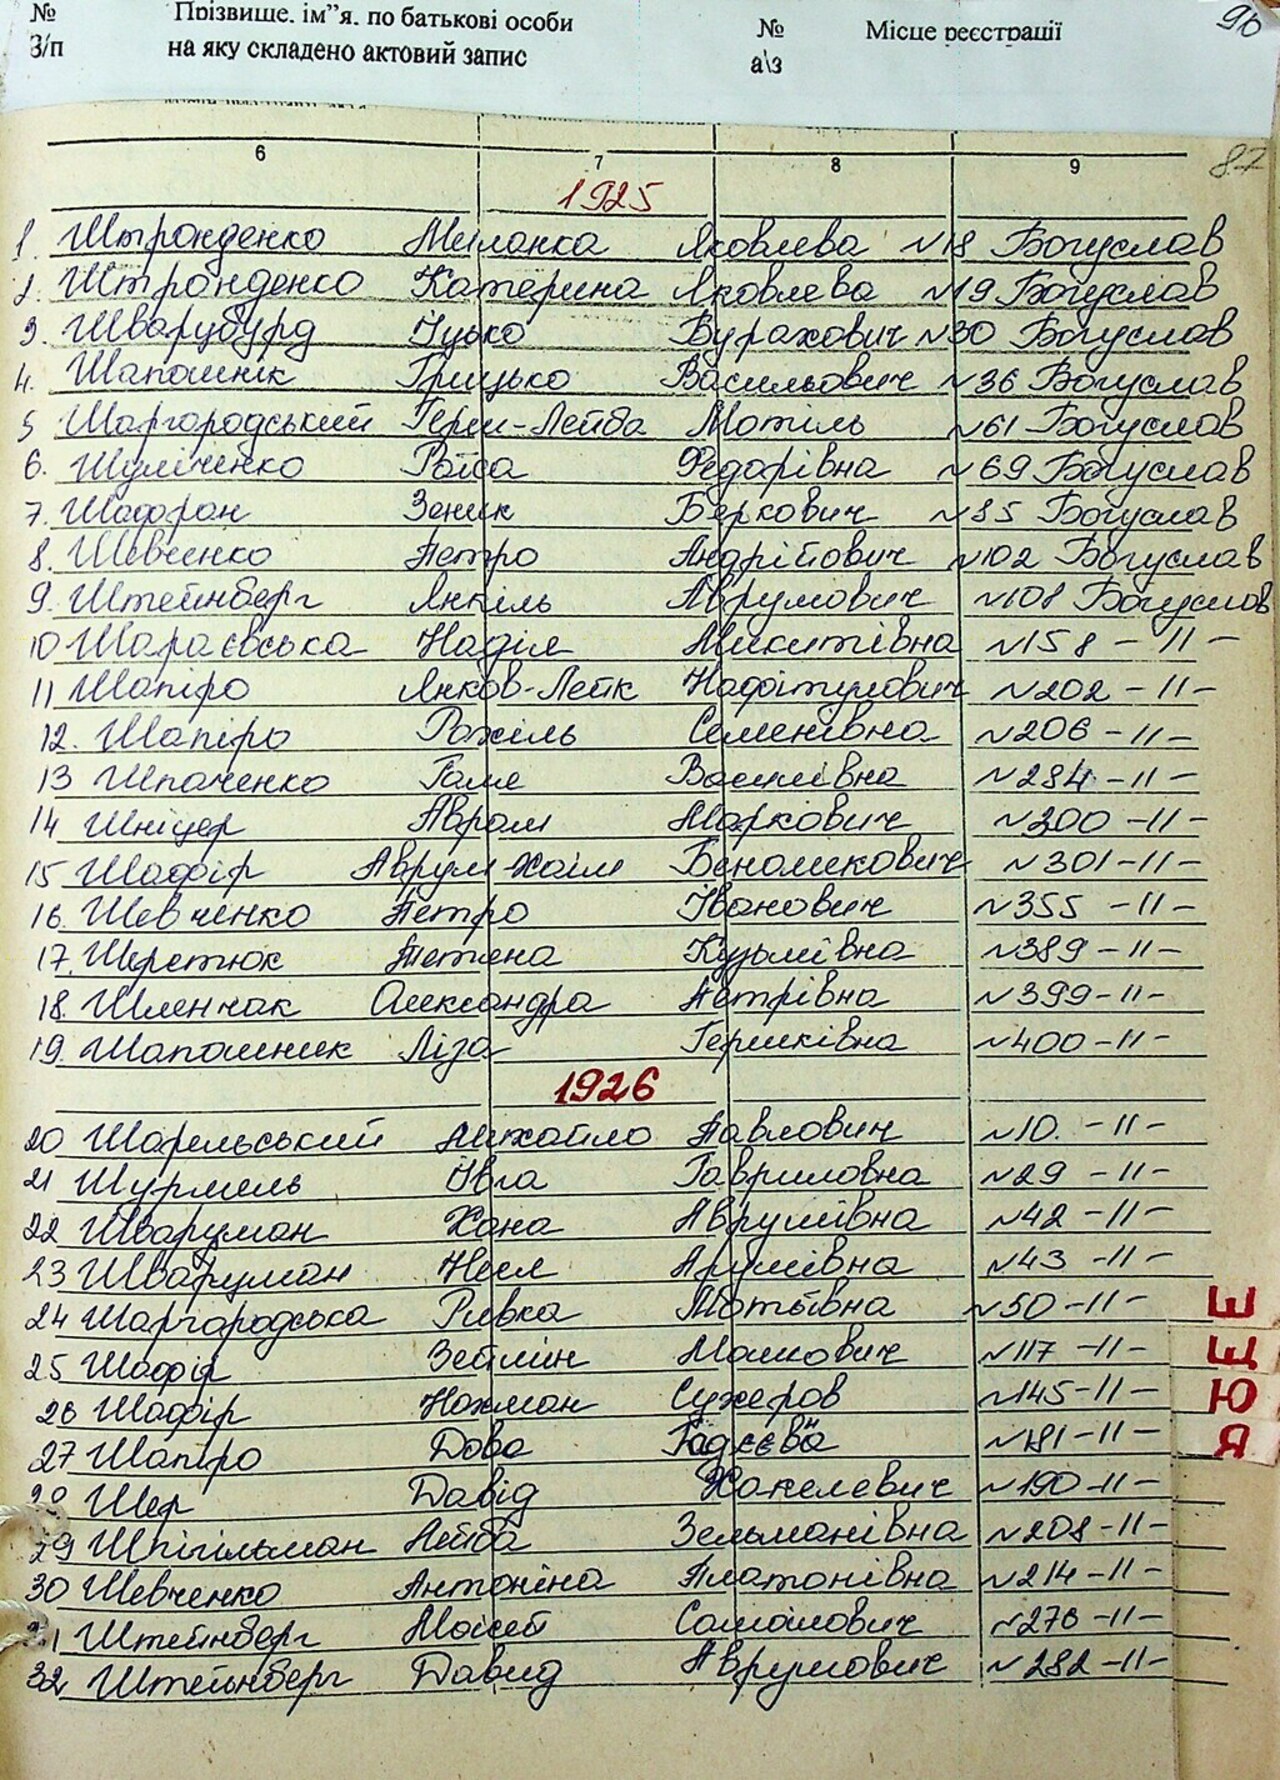 № Прізвище, ім”я, по батькові особи № Місце реєстрації 96
З/п на яку складено актовий запис а\з
6 7 8 9 87
1925
1. Штронденко Меланка Яковлева №18 Богуслав
2. Штронденко Катерина Яковлева №19 Богуслав
3. Шварцбурд Іцько Бурахович №30 Богуслав
4. Шапошнік Грицько Васильович №36 Богуслав
5 Шаргородський Герш-Лейба Мотіль №61 Богуслав
6. Шуліченко Раїса Федорівна №69 Богуслав
7. Шафран Зеник Беркович №85 Богуслав
8. Шевченко Петро Андрійович №102 Богуслав
9. Штейнберг Янкіль Аврумович №108 Богуслав
10 Шараєвська Надія Микитівна №158 -11-
11 Шапіро Янков-Лейк №202 -11-
12. Шапіро Рахіль Семенівна №206 -11-
13 Шпаченко Галя Василівна №284 -11-
14 Шніцер Аврам Маркович №300 -11-
15 Шафір Аврум-Хаім №301 -11-
16. Шевченко Петро Іванович №355 -11-
17. Шеретюк Тетяна Кузьмівна №389 -11-
18. Шленчак Олександра Петрівна №399 -11-
19. Шапошник Ліза Гершківна №400 -11-
1926
20 Михайло Павлович №10. -11-
21 Шурмель Івга Гавриловна №29 -11-
22 Шварцман Хана Аврумівна №42 -11-
23 Шварцман №43 -11-
24 Шаргородська Ривка №50 -11-
25 Шафір Зейлін №117 -11-
26 Шафір Нахман Сухеров №145 -11-
27 Шапіро Дова №181 -11-
28 Шер Давід Хакелевич №190 -11-
29 Шпігільман Лейба Зельманівна №208 -11-
30 Шевченко Антоніна Платонівна №214 -11-
31 Штейнберг Мойсей №276 -11-
32 Штейнберг Давид Аврумович №282 -11-
Е
Щ Е
Ю
Я